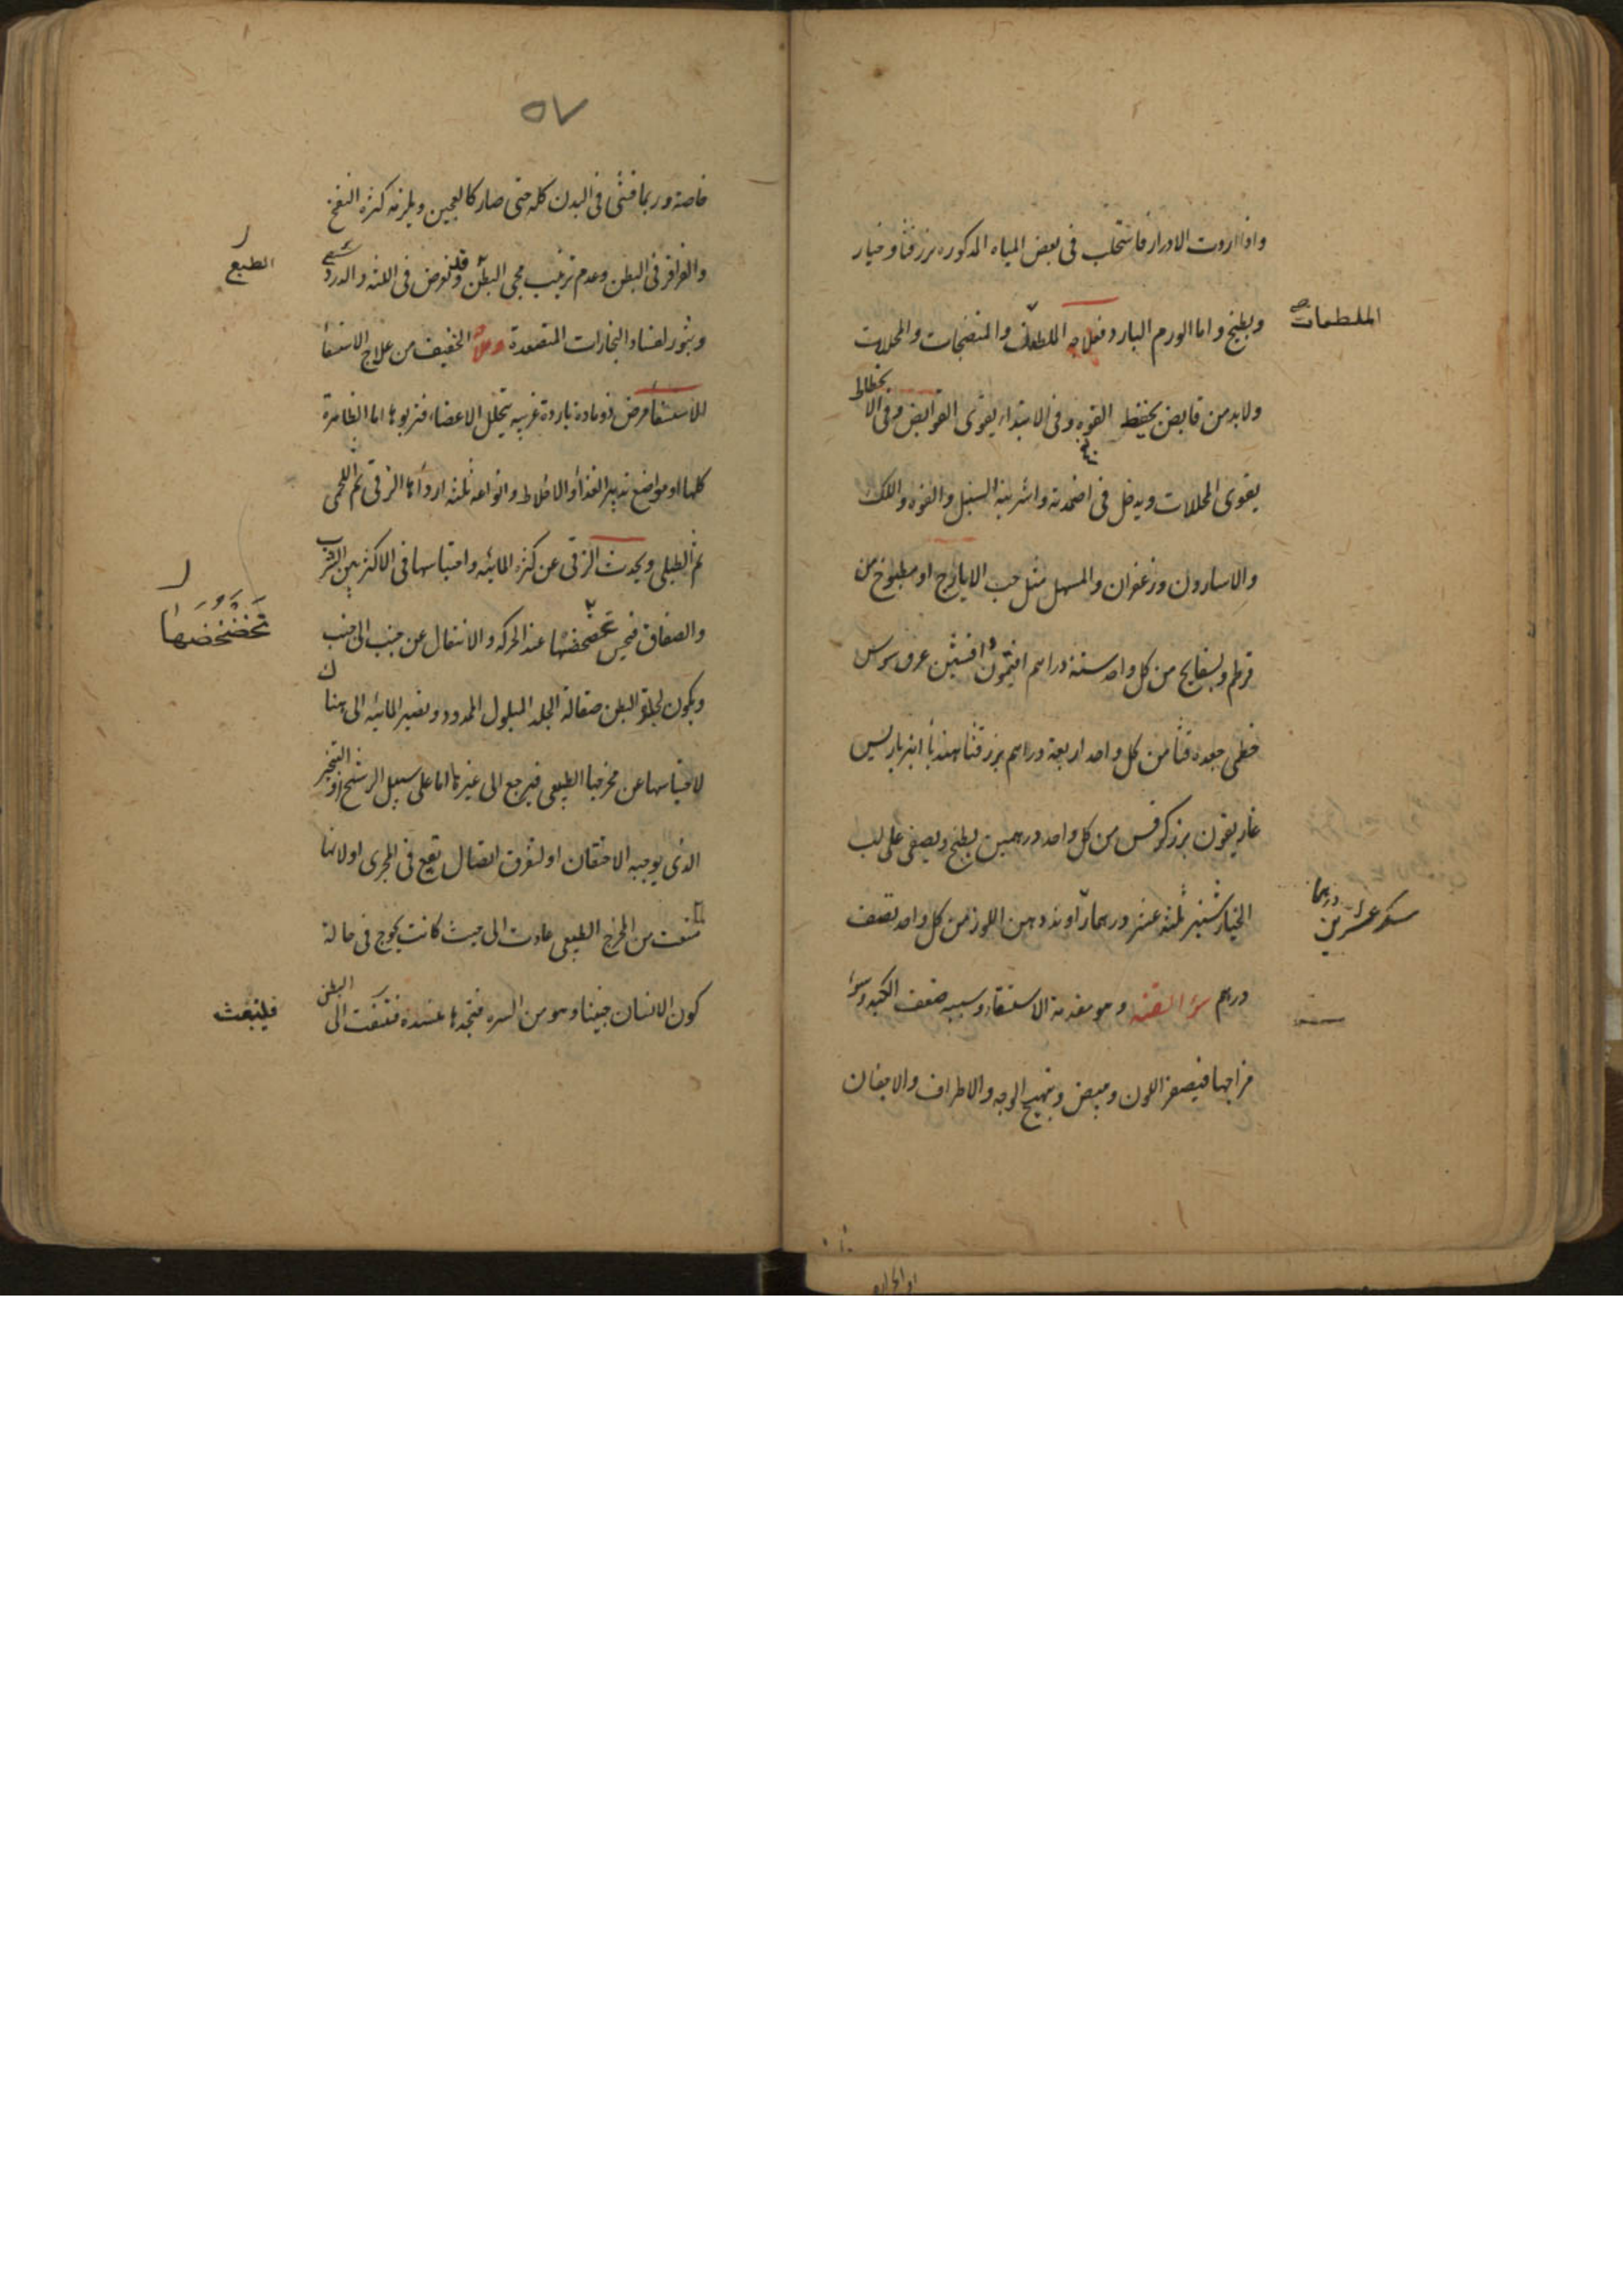 واذا اردت الادرار فاستحلب فى بعض المياه المذكوره بزر قثا وخيار
وبطيخ واما الورم البارد فعلاجه الملطفات والمنضجات والمحللات
الملطفات
ولابد من قابض يحفظ القوه وفى الابتداء يقوى القوابض وفى الانحطاط
يقوى المحللات ويدخل فى اضمدته واشربته السنبل والفوه واللك
والاسارون وزعفران والمسهل مثل حب الايارج او مطبوخ من
قرطم وبسفايج من كل واحد ستة دراهم افتيمون وافسنتين عرق سوس
خطمى جعده قنا من كل واحد اربعة دراهم بزر قثا هندبا انبرباريس
غاريقون بزر كرفس من كل واحد درهمين يطبخ ويصفى على لب
الخيار شنبر ثلثة عشر درهما راوند ودهن اللوز من كل واحد نصف
سكر عشرين درهما
درهم سؤ القنيه وهو مقدمة الاستسقاء وسببه ضعف الكبد وسؤ
مزاجها فيصفر اللون ويبيض ويتهيج الوجه والاطراف والاجفان
٥٧
خاصة وربما فشى فى البدن كله حتى صار كالعجين ويلزمه كثرة النفخ
والقراقر فى البطن وعدم ترتيب مجى البطن وقد يعرض فى اللثه والدرد شى
الطبع
وبثور لفساد البخارات المتصعدة وعلاجه الخفيف من علاج الاستسقا
للاستسقا مرض ذو مادة باردة غريبه يتخلل الاعضاء فتربو بها اما الظاهرة
كلها او مواضع تدبير الغذا والاخلاط وانواعه ثلثة ارداها الزقى ثم اللحمى
ثم الطبلى ويحدث الزقى عن كثرة المائيه واحتباسها فى الاكثر بين الثرب
والصفاق فيحس تخضخضها عند الحركه والانتقال عن جنب الى جنب
تخضخضها
ويكون لجلدة البطن صقالة الجلد المبلول الممدود وتصير المائيه الى هناك
لاحتباسها عن مخرجها الطبيعى فيرجع الى غيرها اما على سبيل الرشح او التبخير
الذى يوجبه الاحتقان او لتفرق اتصال يقع فى المجرى او لانها
منعت من المخرج الطبيعى عادت الى حيث كانت يخرج فى حالة
كون الانسان جنينا وهو من السره فتجدها عنده فتنفت الى البطن
فلينبعث